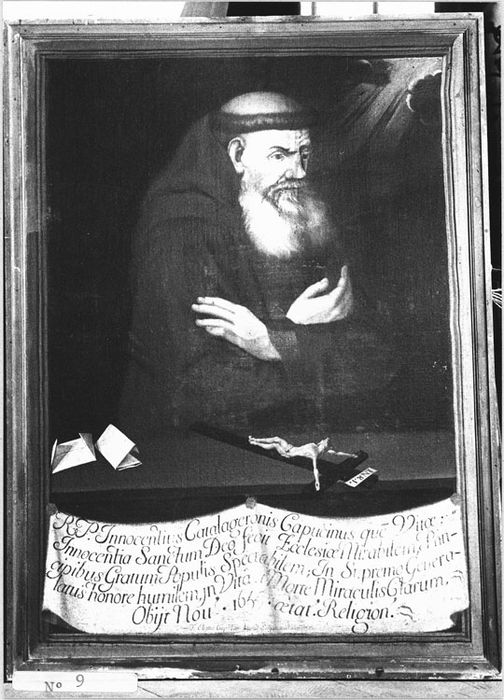 INRI
R. P. Innocentius Catalageronis Capucinus quē Vitæ
Innocentia Sanctum Deo fecit Ecclesiæ Mirabilem, Prin-
cipibus Gratum, Populis Spectabilem, In Supremo Genera-
latus honore humilem, In Vita Morte Miraculis Clarum.
Obijt Nou 165 ætat. Religion.
No 9